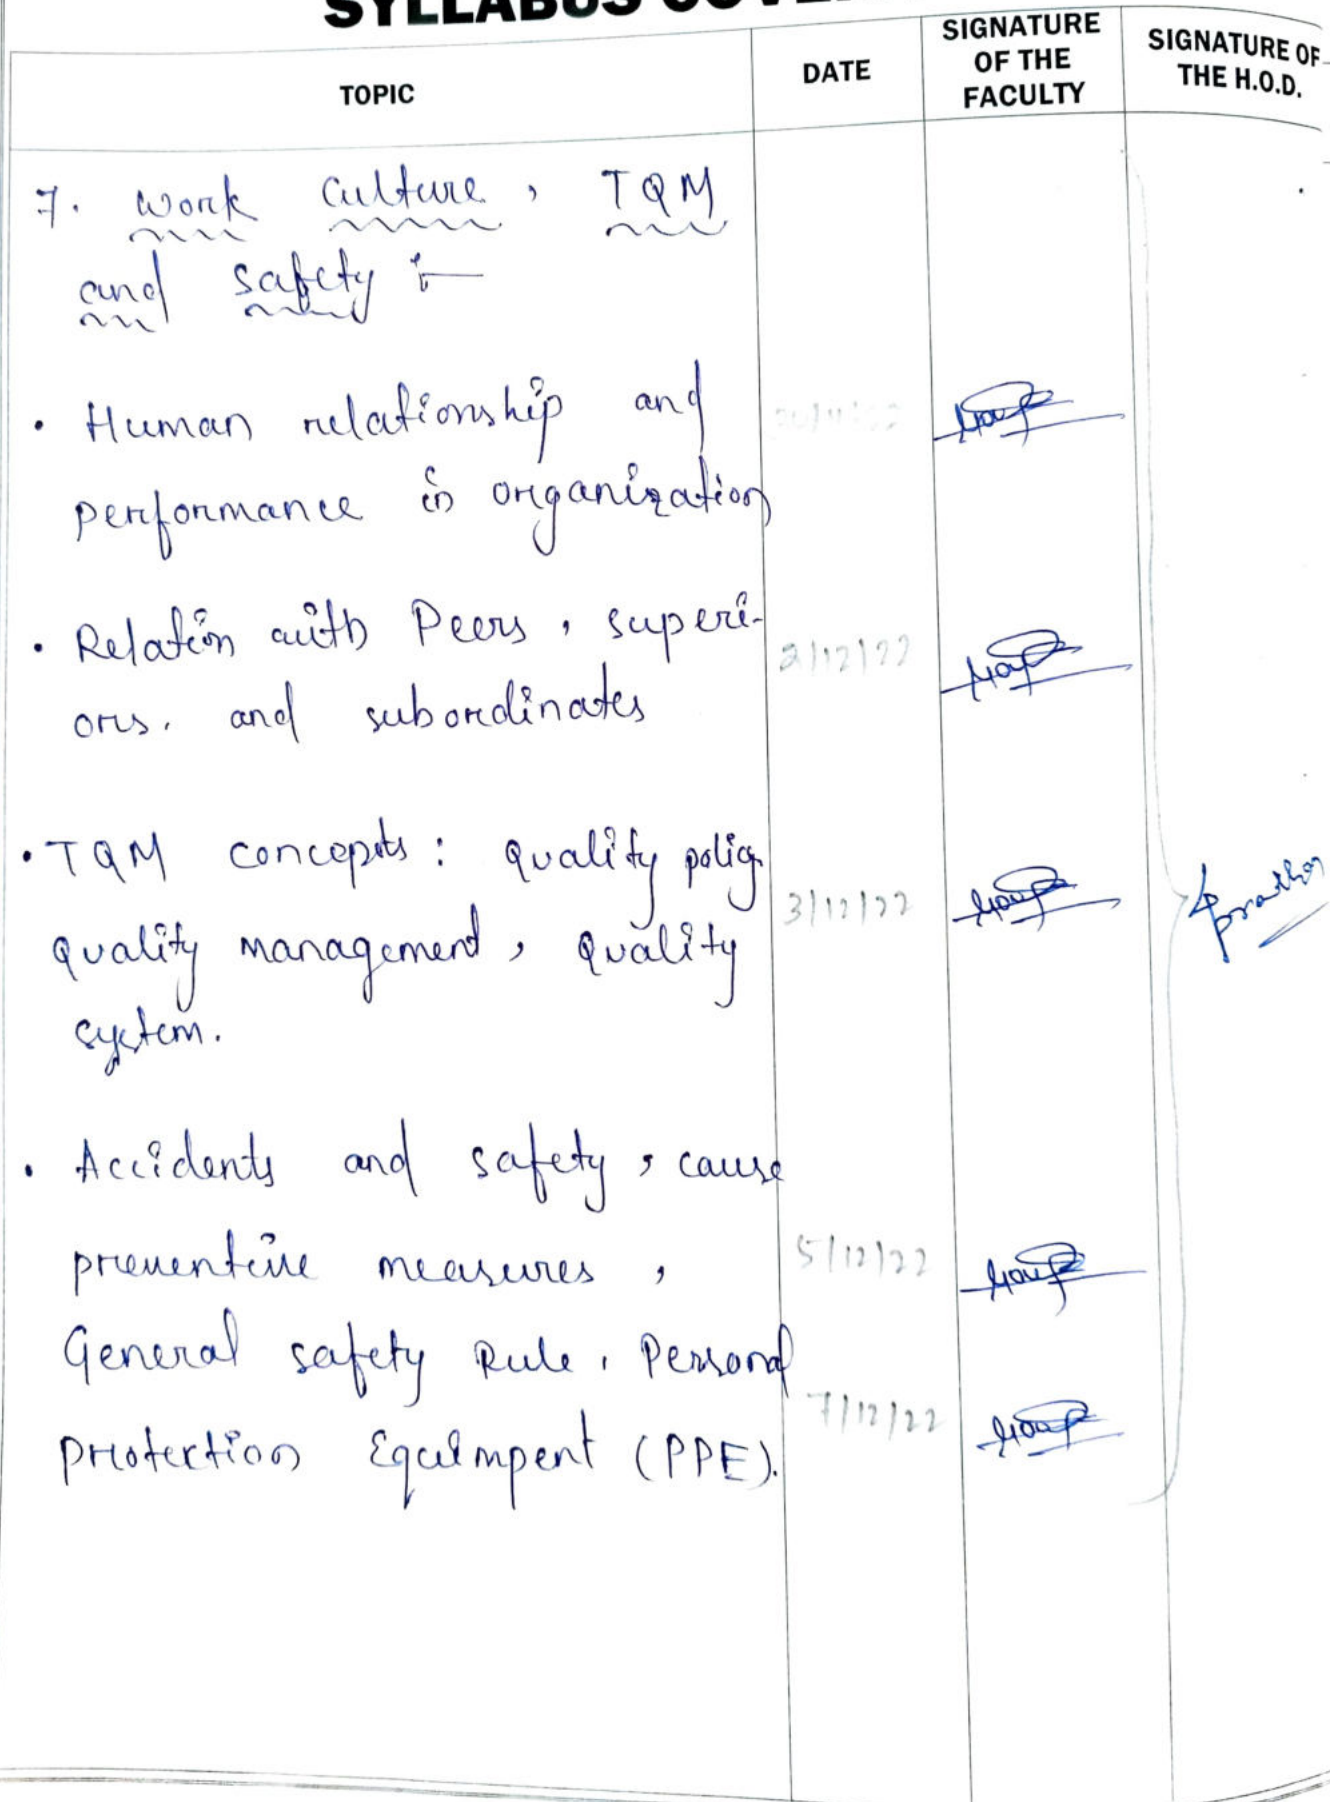 SYLLABUS
TOPIC
DATE
SIGNATURE
OF THE
FACULTY
SIGNATURE OF
THE H.O.D.
7. Work Culture, TQM
and safety :-
• Human relationship and
performance in organization
• Relation with Peers, superi-
2/12/22
ors. and subordinates
• TQM concepts: Quality policy
3/12/22
Quality management, Quality
system.
• Accidents and safety, cause
preventive measures,
5/12/22
General safety Rule, Personal
7/12/22
Protection Equimpent (PPE).